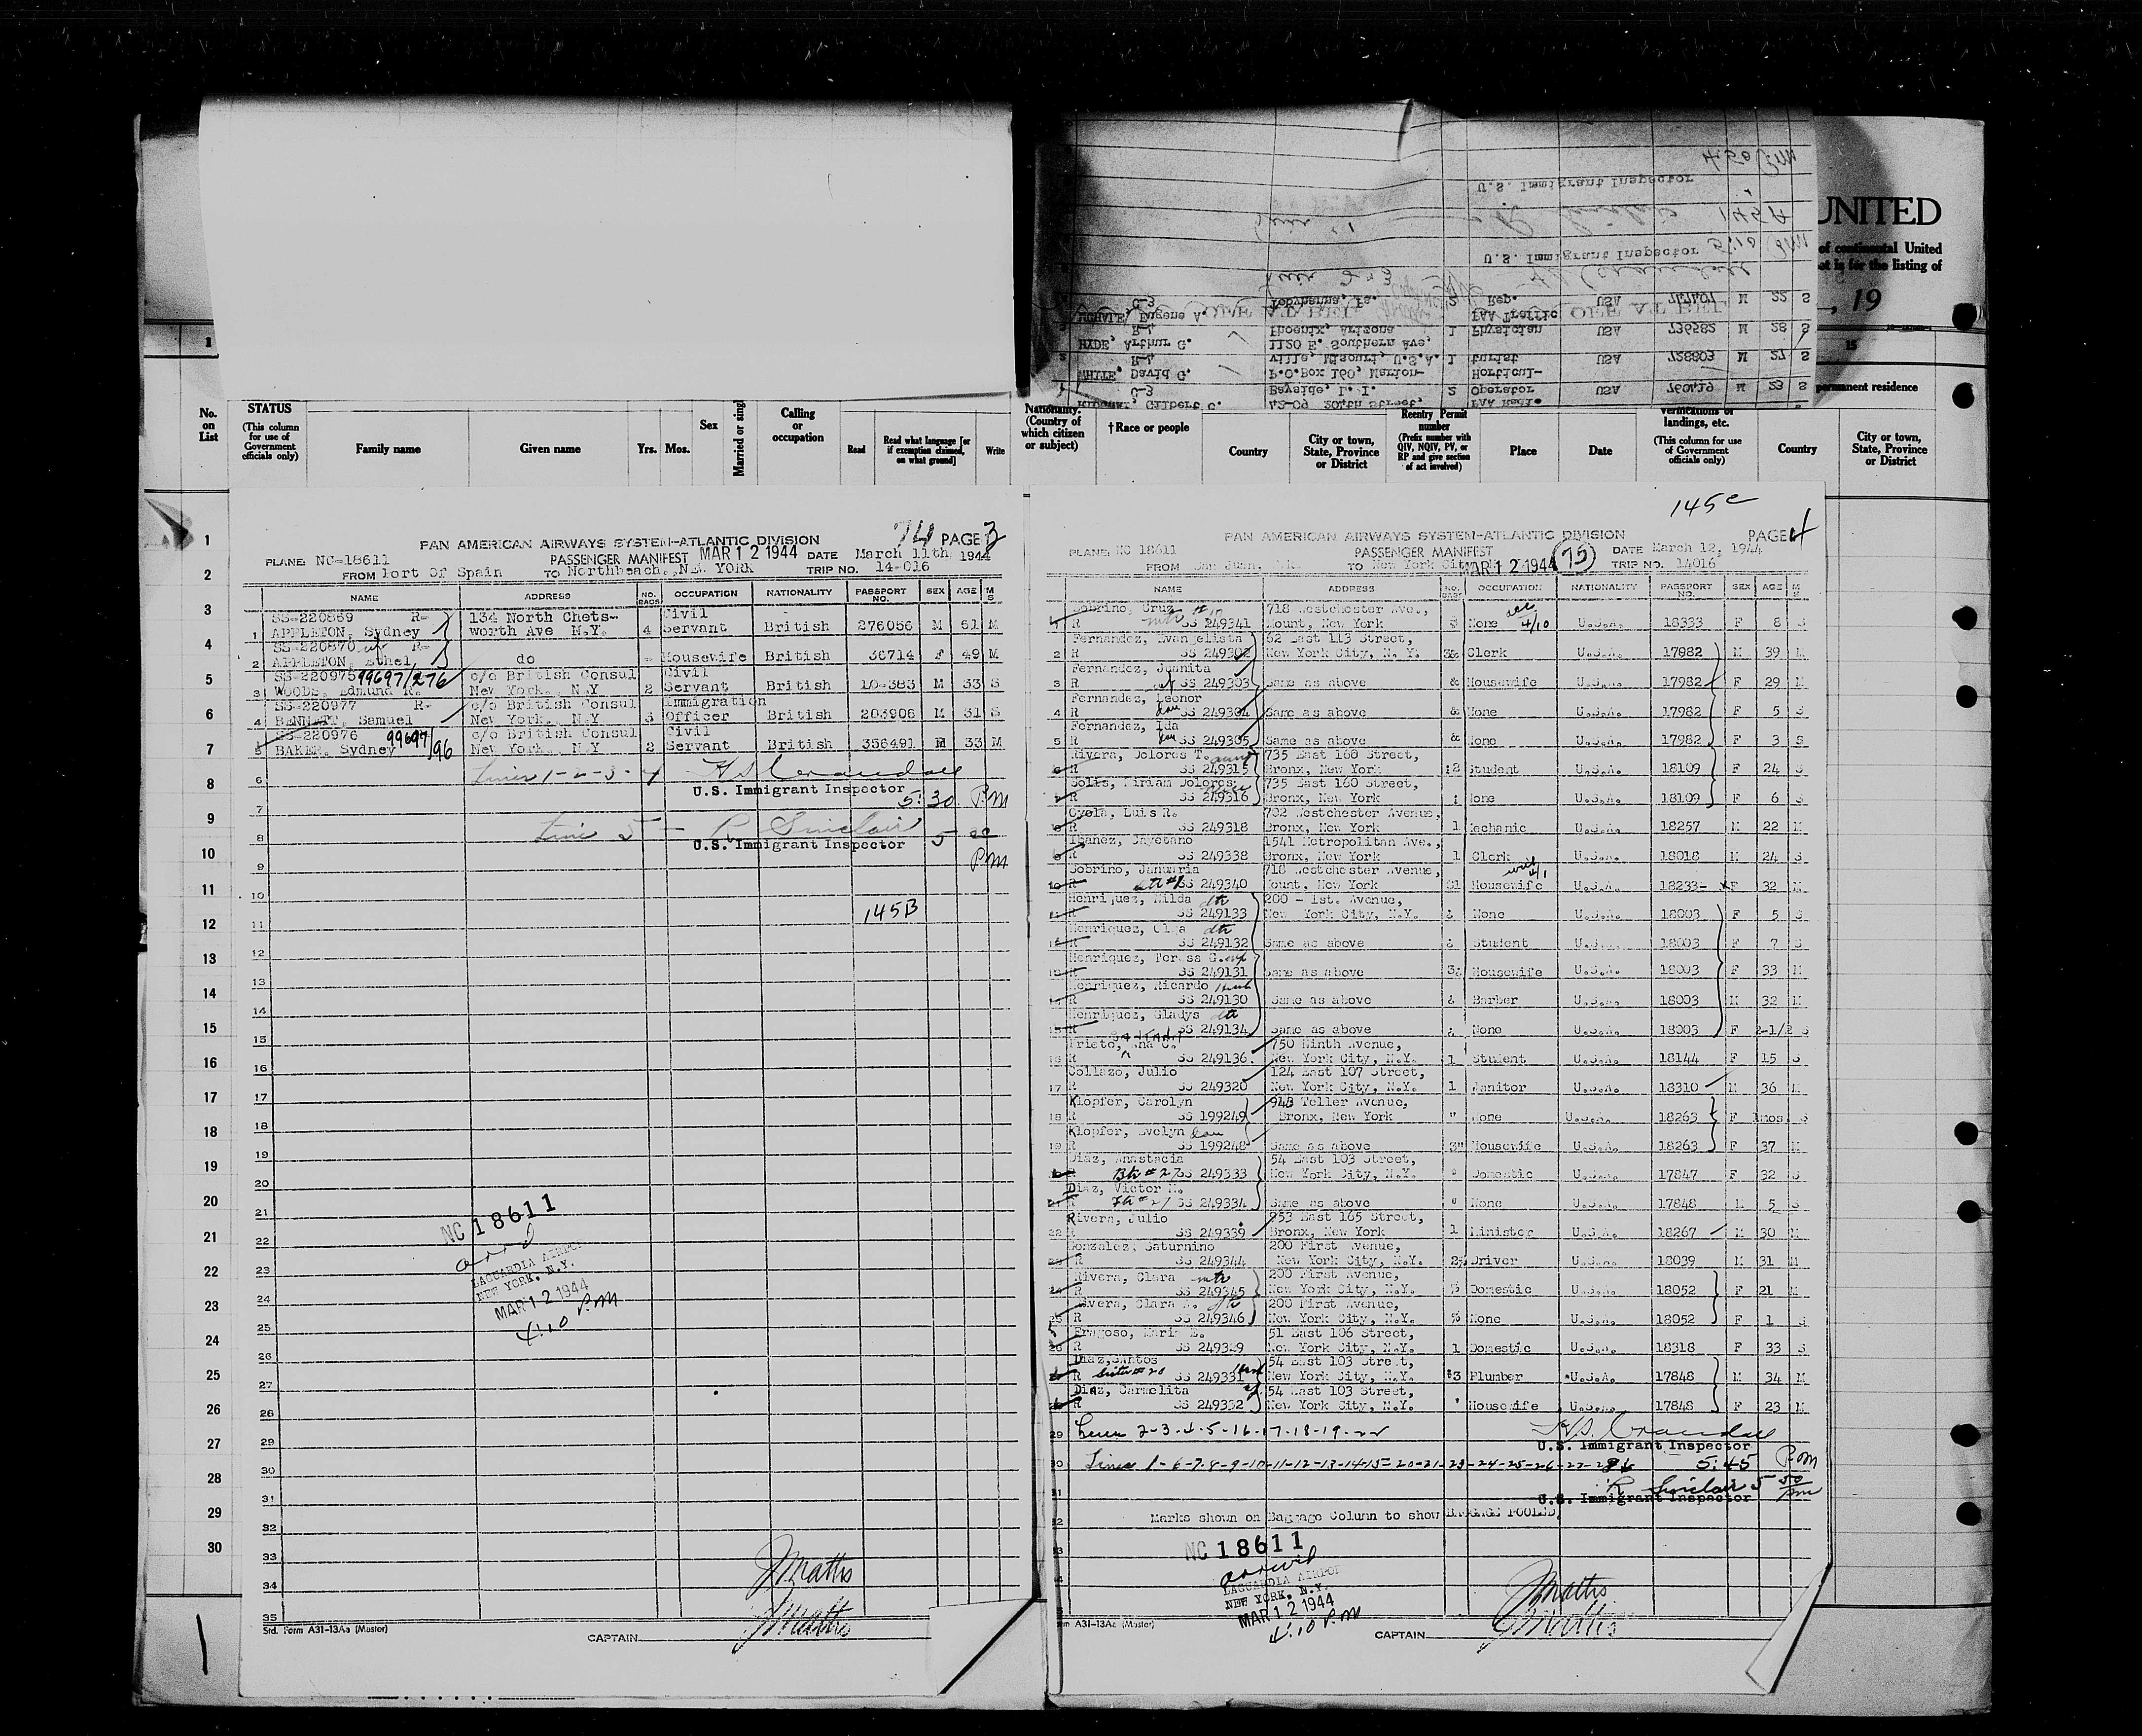 UNITED
of continental United
at is for the listing of
, 19
15
permanent residence
1
4:50 PM
U.S. Immigrant Inspector
145A
5:10 PM
U.S. Immigrant Inspector
Line 2 & 3
G-3 Tobyhanna, Pa. 2 Rep. USA 747407 M 22 S
MCHALE, Eugene A. PAA Traffic
R-4 Phoenix, Arizona 1 Physician USA 736582 M 28 S
HYDE, Arthur G. 1120 E. Southern Ave,
R-4 ville, Misouri, U.S.A. 1 turist USA 728803 M 27 S
WHYTE, David G. P.O.Box 160, Marion- Horticul-
G-3 Bayside, L. I. 2 Operator USA 760419 M 23 S
Gilbert G. 42-09 204th Street, PAA Radio
No. on List
STATUS
(This column for use of Government officials only)
Family name
Given name
Yrs. Mos.
Sex
Married or single
Calling or occupation
Read
Read what language [or if exemption claimed, on what ground]
Write
Nationality. (Country of which citizen or subject)
†Race or people
Country
City or town, State, Province or District
Reentry Permit number
(Prefix number with QIV, NQIV, PV, or RP and give section of act involved)
Place
Date
Verifications of landings, etc.
(This column for use of Government officials only)
Country
City or town, State, Province or District
1
2
3
4
5
6
7
8
9
10
11
12
13
14
15
16
17
18
19
20
21
22
23
24
25
26
27
28
29
30
74 PAGE 3
PAN AMERICAN AIRWAYS SYSTEM-ATLANTIC DIVISION
PLANE: NC-18611 PASSENGER MANIFEST MAR 12 1944 DATE March 11th 1944
FROM Port Of Spain TO Northbeach, NEW YORK TRIP NO. 14-016
NAME ADDRESS NO. BAGS OCCUPATION NATIONALITY PASSPORT NO. SEX AGE M S
SS-220869 R- 134 North Chets- Civil
1 APPLETON, Sydney worth Ave N.Y. 4 Servant British 276056 M 61 M
SS-220870 wf R-
2 APPLETON, Ethel, do - Housewife British 36714 F 49 M
SS-220975 99697/276 c/o British Consul Civil
3 WOODS, Edmund R. New York. N.Y 2 Servant British 10-383 M 33 S
SS-220977 R- c/o British Consul Immigration
4 BENNETT, Samuel New York. N.Y 3 Officer British 203906 M 31 S
SS-220976 99697/96 c/o British Consul Civil
5 BAKER, Sydney New York. N.Y 2 Servant British 356491 M 33 M
6 Lines 1-2-3-4 H S Crandall
U.S. Immigrant Inspector
7 5:30 P.M
8 Line 5 - R Sinclair 5
U.S. Immigrant Inspector
9 PM
10
11 145B
12
13
14
15
16
17
18
19
20
21
22
23
24
25
26
27
28
29
30
31
32
33
34
35
NC 18611
arrd
LAGUARDIA AIRPORT
NEW YORK, N.Y.
MAR 12 1944
4:10 P.M
J Mattis
J Mattis
Std. Form A31-13Aa (Master)
CAPTAIN
145C
PAN AMERICAN AIRWAYS SYSTEM-ATLANTIC DIVISION PAGE 4
PLANE: NC 18611 PASSENGER MANIFEST (75) DATE March 12, 1944
FROM San Juan, P.R. TO New York City MAR 12 1944 TRIP NO. 14016
NAME ADDRESS NO. BAGS OCCUPATION NATIONALITY PASSPORT NO. SEX AGE M S
Sobrino, Cruz #10 718 Westchester Ave., see
R mtr SS 249341 Mount, New York None #10 U.S.A. 18333 F 8 S
Fernandez, Evangelista 62 East 113 Street,
2 R SS 249302 New York City, N. Y. 3& Clerk U.S.A. 17982 M 39 M
Fernandez, Juanita
3 R wf SS 249303 Same as above & Housewife U.S.A. 17982 F 29 M
Fernandez, Leonor
4 R dau SS 249304 Same as above & None U.S.A. 17982 F 5 S
Fernandez, Ida
5 R dau SS 249305 Same as above & None U.S.A. 17982 F 3 S
Rivera, Dolores T. aunt 735 East 160 Street,
6 R SS 249315 Bronx, New York Student U.S.A. 18109 F 24 S
Solis, Miriam Dolores 735 East 160 Street,
7 R SS 249316 Bronx, New York None U.S.A. 18109 F 6 S
Oyola, Luis R. 702 Westchester Avenue,
8 R SS 249318 Bronx, New York 1 Mechanic U.S.A. 18257 M 22 M
Ibanez, Cayetano 1541 Metropolitan Ave.,
9 R SS 249338 Bronx, New York 1 Clerk U.S.A. 18018 M 24 S
Sobrino, Januaria 718 Westchester Avenue, with
10 R dtr #1 SS 249340 Mount, New York Housewife #1 U.S.A. 18233- F 32 M
Henriquez, Nilda dtr 200 - 1st. Avenue,
11 R SS 249133 New York City, N.Y. None U.S.A. 18003 F 5 S
Henriquez, Olga dtr
12 R SS 249132 Same as above Student U.S.A. 18003 F 7 S
Henriquez, Teresa G. wf
13 R SS 249131 Same as above Housewife U.S.A. 18003 F 33 M
Henriquez, Ricardo husb
14 R SS 249130 Same as above Barber U.S.A. 18003 M 32 M
Henriquez, Gladys dtr
15 R SS 249134 Same as above None U.S.A. 18003 F 2-1/2 S
Prieto, Ana C. 750 Ninth Avenue,
16 R SS 249136. New York City, N.Y. 1 Student U.S.A. 18144 F 15 S
Collazo, Julio 124 East 107 Street,
17 R SS 249320 New York City, N.Y. 1 Janitor U.S.A. 18310 M 36 M
Klopfer, Carolyn 943 Teller Avenue,
18 R SS 199249 Bronx, New York " None U.S.A. 18263 F 1mos S
Klopfer, Evelyn
19 R SS 199248 Same as above 3" Housewife U.S.A. 18263 F 37 M
Diaz, Anastacia 54 East 103 Street,
R Str #27 SS 249333 New York City, N.Y. Domestic U.S.A. 17847 F 32 S
Diaz, Victor M.
21 R SS 249334 Same as above None U.S.A. 17848 M 5 S
Rivera, Julio 953 East 165 Street,
22 R SS 249339 Bronx, New York 1 Minister U.S.A. 18267 M 30 M
Gonzalez, Saturnino 200 First Avenue,
23 R SS 249344 New York City, N.Y. 2% Driver U.S.A. 18039 M 31 M
Rivera, Clara mtr 200 First Avenue,
24 R SS 249345 New York City, N.Y. % Domestic U.S.A. 18052 F 21 M
Rivera, Clara dtr 200 First Avenue,
25 R SS 249346 New York City, N.Y. % None U.S.A. 18052 F 1 S
Fragoso, Maria E. 51 East 106 Street,
26 R New York City, N.Y. 1 Domestic U.S.A. 18318 F 33 S
Diaz, Santos 54 East 103 Street,
R sister #20 SS 249331 New York City, N.Y. 3 Plumber U.S.A. 17848 M 34 M
Diaz, Carmelita wf 54 East 103 Street,
R SS 249332 New York City, N.Y. Housewife U.S.A. 17848 F 23 M
29 Lines 2-3-4-5-16-17-18-19-22 H.S. Crandall
U.S. Immigrant Inspector
30 Lines 1-6-7-8-9-10-11-12-13-14-15-20-21-23-24-25-26-27-28 5:45 P.M
R Sinclair 5 50 pm
31 U.S. Immigrant Inspector
Marks shown on Baggage Column to show BAGGAGE POOLED.
NC 18611
arrived
LAGUARDIA AIRPORT
NEW YORK, N.Y.
MAR 12 1944
4:10 P.M
J Mattis
J Mattis
A31-13Aa (Master)
CAPTAIN